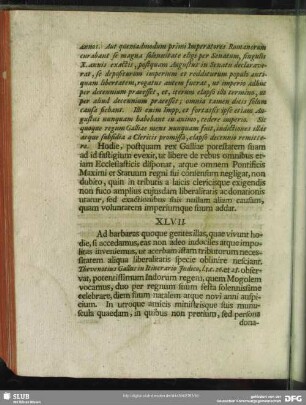 annis: Aut quemadmodum primi Imperatores Romanorum
curabant se magna solennitate eligi per Senatum, singulis
X. annis exactis, postquam Augustus in Senatu declarave-
rat, se depositurum imperium et redditurum populo anti-
quam libertatem, rogatus autem fuerat, ut imperio adhuc
per decennium praeesset, et, iterum elapso illo termino, ut
per aliud decennium praeesset; omnia tamen dicis solum
causa fiebant.
quoque regum Galliae mens nunquam fuit, indictiones illas
atque subsidia a Clericis promissa, elapso decennio remitte-
re. Hodie, postquam rex Galliae potestatem suam
ad id fastigium evexit, ut libere de rebus omnibus et-
iam Ecclesiasticis disponat, atque omnem Pontificis
Maximi et Statuum regni sui consensum negligat, non
dubito, quin in tributis a suis clericisque exigendis
non fuco amplius cujusdam liberalitatis ac donationis
utatur, sed exactionibus suis nullam aliam causam,
quam voluntatem imperiumque suum addat.
XLVII.
Ad barbaras quoque gentes illas, quae vivunt ho-
die, si accedamus, eas non adeo indociles atque impo-
litas inveniemus, ut acerbam istam tributorum neces-
sitatem aliqua liberalitatis specie oblinire nesciant.
Thevenotius Gallus in Itinerario Indico, obser-
vat, potentissimum Indorum regem, quem Mogolem
vocamus, duo per regnum suum festa quotannis
celebrare, diem suum natalem atque novi anni auspi-
cium. In utroque amicis ministrisque suis munu-
scula quaedam, in quibus non pretium, sed persona
dona-
SLUB
Wir führen Wissen.
gefördert von der
Deutschen Forschungsgemeinschaft
DFG